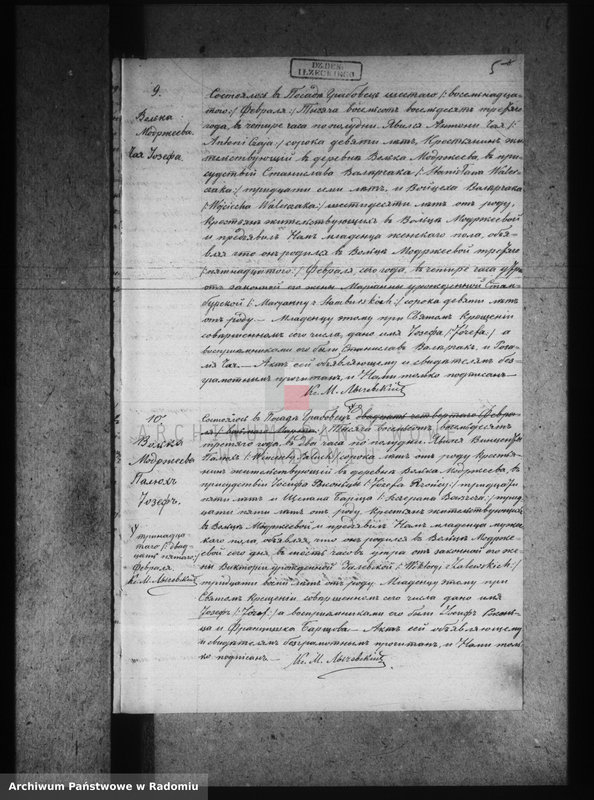 DEDES.
IŁZECKIEGO
5
9.
Волька
Модржеева.
Чая Іозефа.
Состоялось въ Посадѣ Грабовец шестаго /: восемнадца-
таго :/ Февраля /: Тысяча восемьсотъ восемьдесятъ третяго
года, въ четыре часа по полудни. Явился Антони Чая /:
Antoni Czaja :/ сорока девяти лѣтъ, Крестьянинъ жи-
тельствующій въ деревнѣ Волька Модржеева, въ при-
сутствіи Станислава Вальчака /: Stanisława Walcz-
aka :/ тридцати семи лѣтъ, и Войцеха Вальчака
/: Wojciecha Walczaka :/ шестидесяти лѣтъ отъ роду,
Крестьянъ жительствующихъ въ Вольцѣ Модржеевой
и предъявилъ Намъ младенца женскаго пола, объя-
вляя что онъ родился въ Вольцѣ Модржеевой третяго
/: пятнадцатаго :/ Февраля, сего года, въ четыре часа утра
отъ законной его жены Маріанны урожденной Стам-
бурской /: Maryanny z Stamburskich :/ сорока девяти лѣтъ
отъ роду. — Младенцу этому при Святомъ Крещеніи
совершенномъ сего числа, дано имя Іозефа /: Józefa :/ а
воспріемниками его были Станиславъ Вальчакъ, и Роза-
лія Чая. — Актъ сей объявляющему и свидѣтелямъ без-
грамотнымъ прочитанъ, и Нами только подписанъ —
Кс. М. Лычевскій
10.
Волька
Модржеева
Палюхъ
Іозефъ.
Состоялось въ Посадѣ Грабовец двадцать четвертаго Февра-
ля /: Тысяча восемьсотъ восемьдесятъ
третяго года, въ два часа по полудни. Явился Винценты
Палюхъ /: Wincenty Paluch :/ сорока лѣтъ отъ роду Крестья-
нинъ жительствующій въ деревнѣ Волька Модржеева, въ
присутствіи Іосифа /: Józefa :/ тридцати
пяти лѣтъ и /: :/ трид-
цати пяти лѣтъ отъ роду Крестьянъ жительствующихъ
въ Вольцѣ Модржеевой и предъявилъ Намъ младенца муже-
скаго пола, объявляя, что онъ родился въ Вольцѣ Модрже-
евой сего дня, въ шесть часовъ утра отъ законной его же-
ны Викторіи урожденной Залевской /: :/
тридцати восьми лѣтъ отъ роду. Младенцу этому при
Святомъ Крещеніи совершенномъ сего числа дано имя
Іозефъ /: Józef :/ а воспріемниками его были Іосифъ
и Франтишка Барцова — Актъ сей объявляющему
и свидѣтелямъ безграмотнымъ прочитанъ, и Нами толь-
ко подписанъ — Кс. М. Лычевскій
тринадца-
таго /: двад-
цать пятаго :/
Февраля.
Кс. М. Лычевскій
Archiwum Państwowe w Radomiu